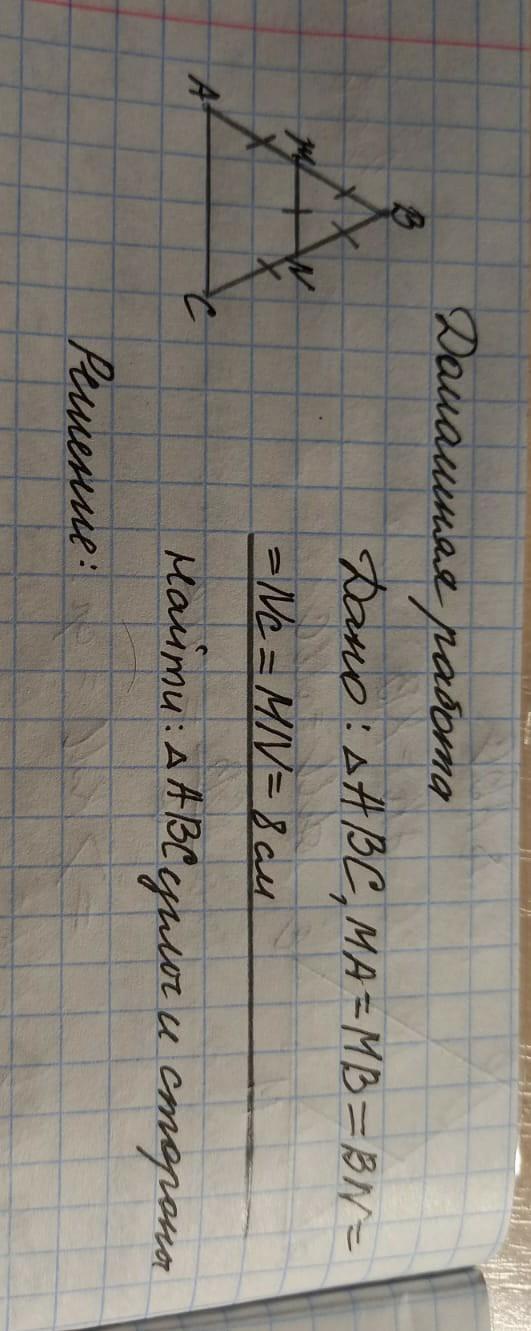 Домашняя работа
B
M
N
A
C
Дано: △ABC, MA = MB = BN =
= NC = MN = 8 см
Найти: △ABC углы и стороны
Решение: